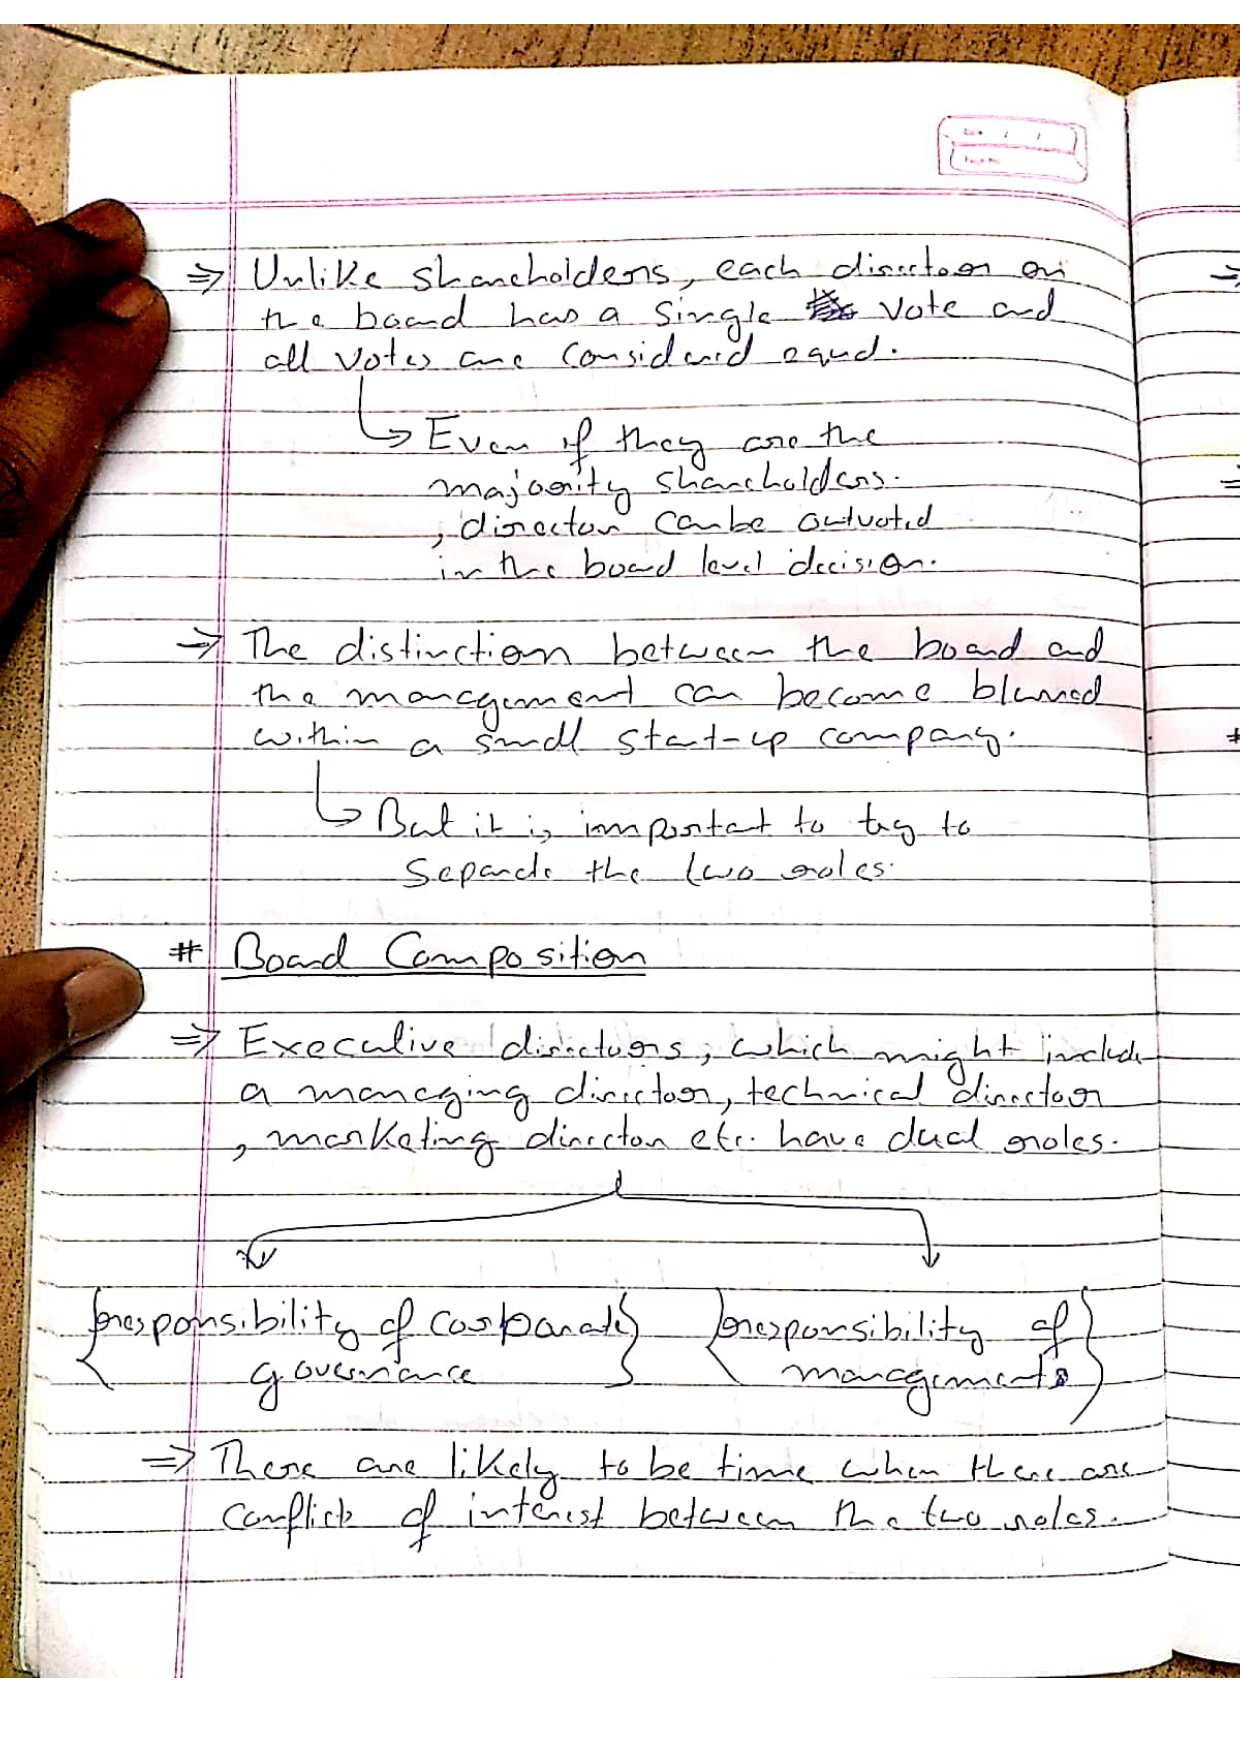 ⇒ Unlike shareholders, each director on
the board has a single vote and
all votes are considered equal.
↳ Even if they are the
majority shareholders.
, director can be outvoted
in the board level decision.
⇒ The distinction between the board and
the management can become blurred
within a small start-up company.
↳ But it is important to try to
separate the two roles.
# Board Composition
⇒ Executive directors, which might include
a managing director, technical director
, marketing director etc. have dual roles.
{responsibility of corporate governance} {responsibility of managements}
⇒ There are likely to be time when there are
conflicts of interest between the two roles.